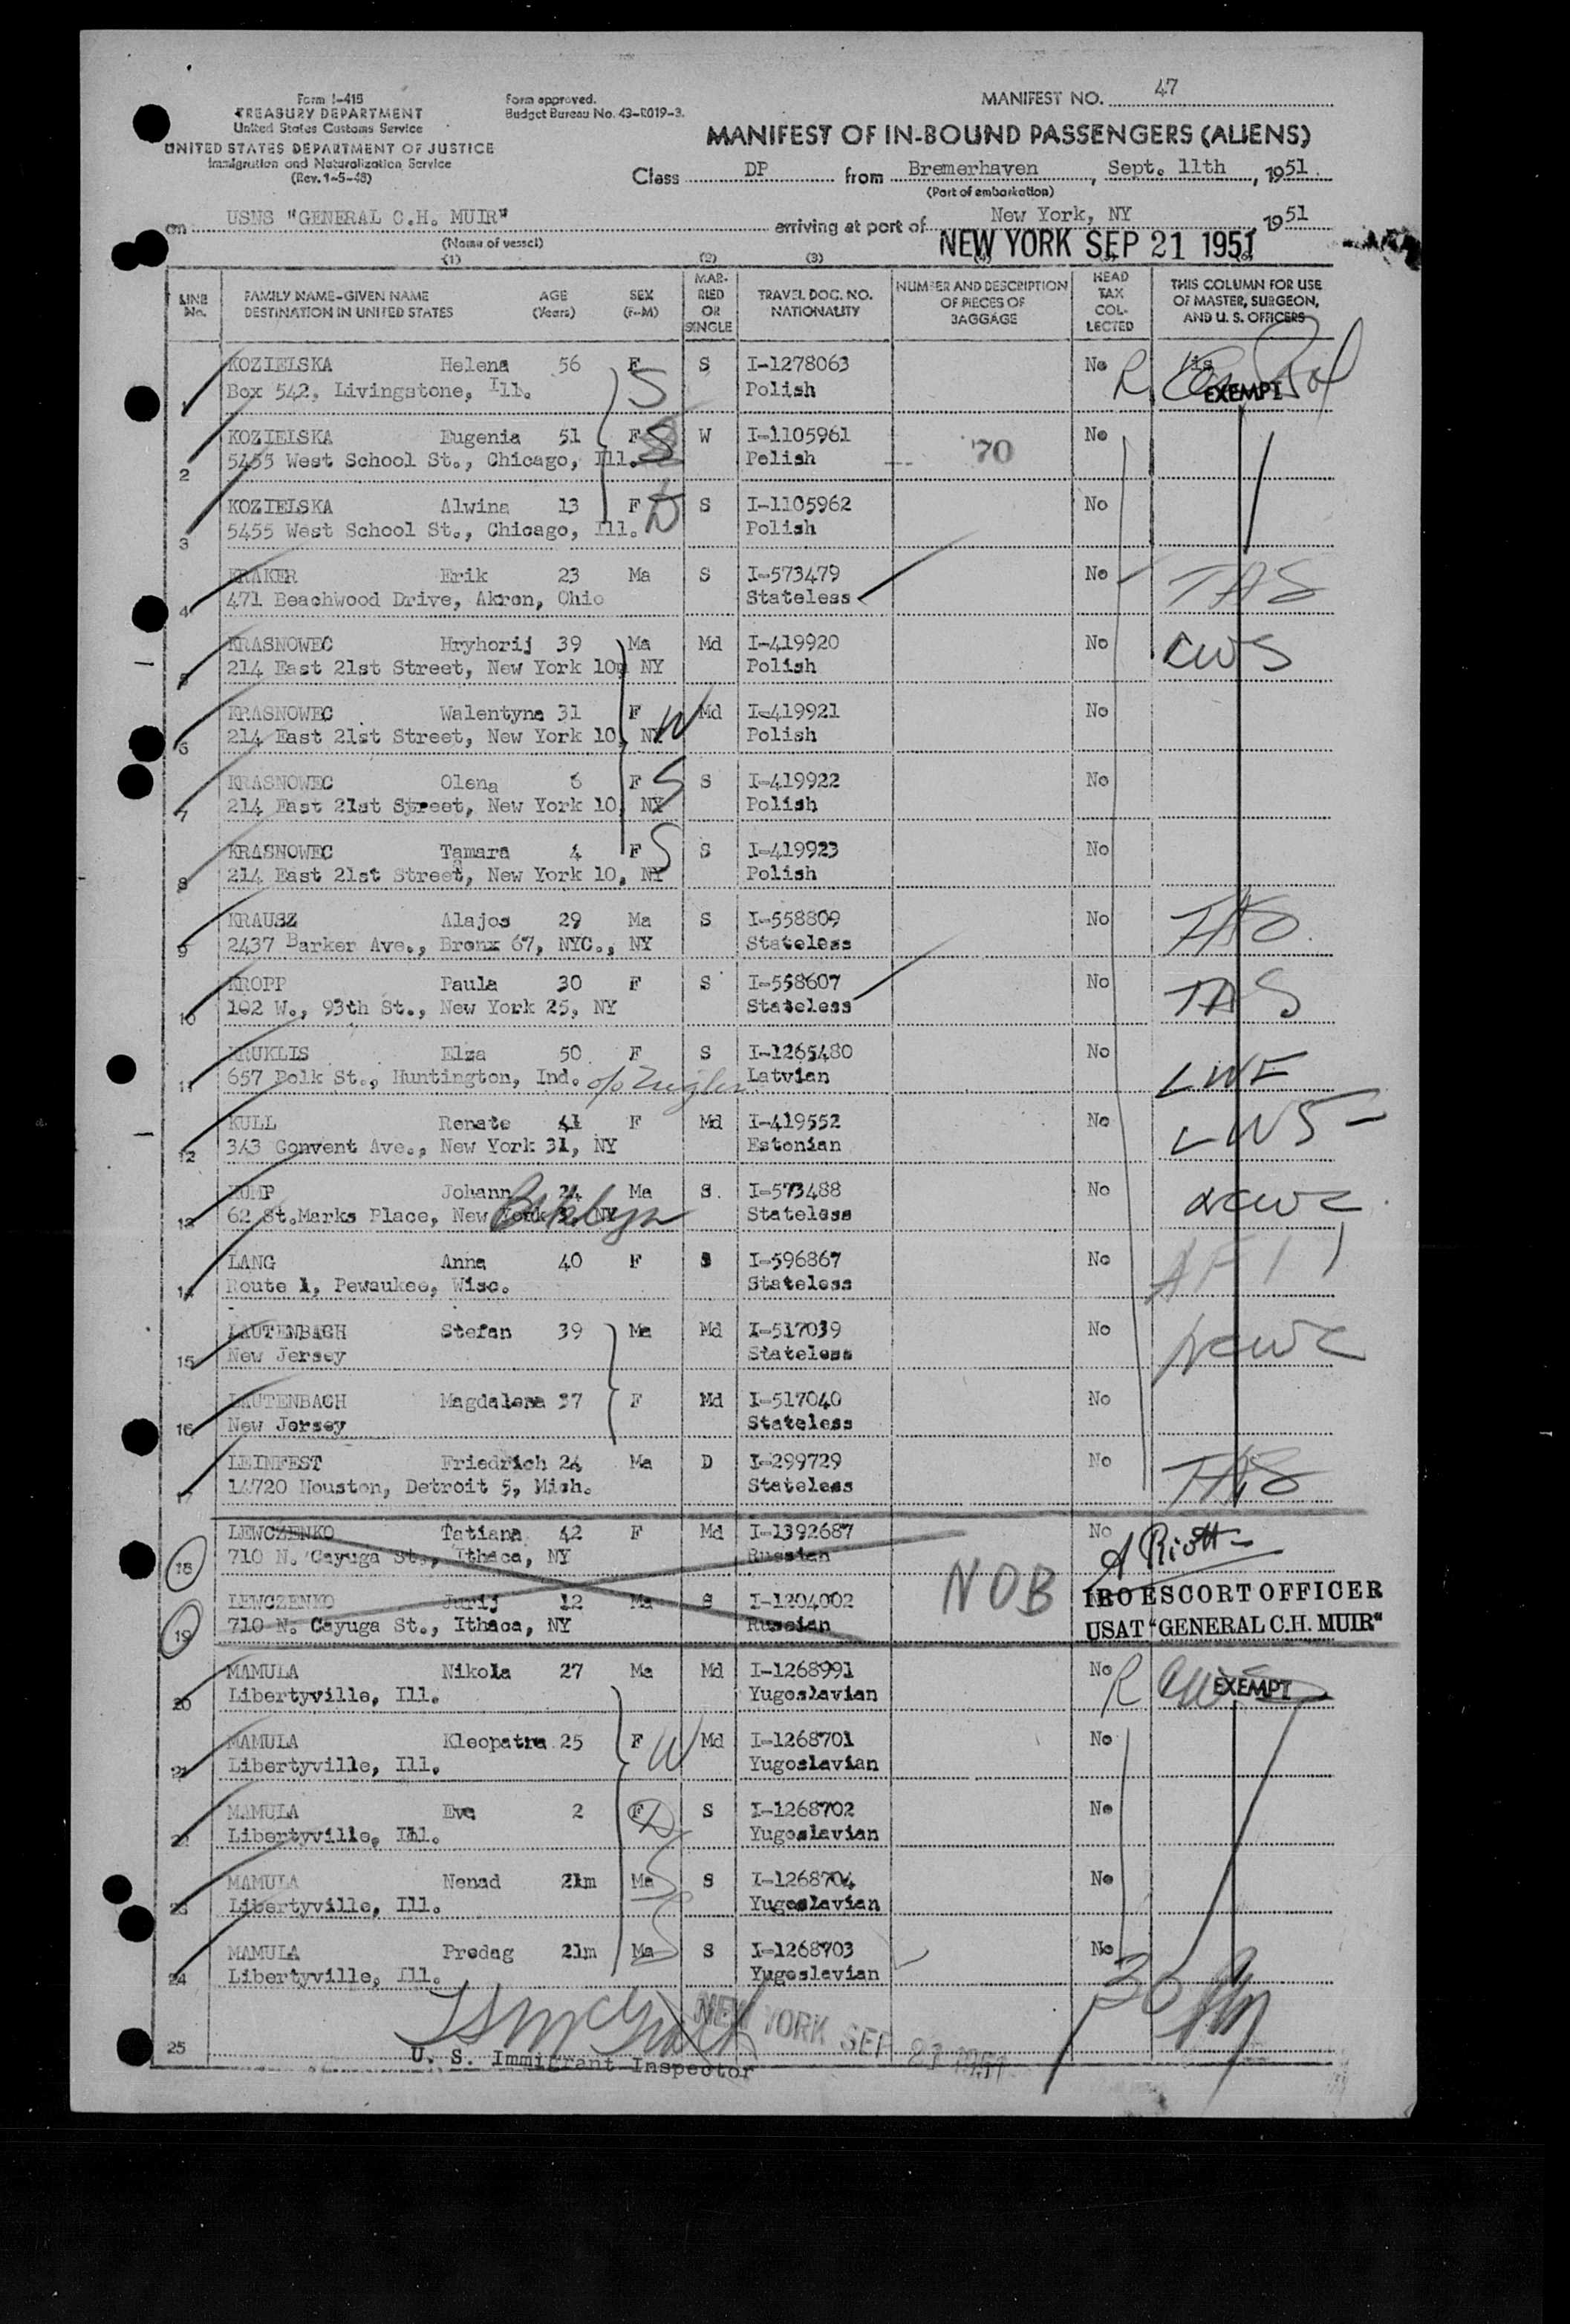 MANIFEST NO. 47
Form I-415
TREASURY DEPARTMENT
United States Customs Service
UNITED STATES DEPARTMENT OF JUSTICE
Immigration and Naturalization Service
(Rev. 1-5-48)
Form approved.
Budget Bureau No. 43-R019-3.
MANIFEST OF IN-BOUND PASSENGERS (ALIENS)
Class DP from Bremerhaven, Sept. 11th, 1951
(Port of embarkation)
on USNS "GENERAL C.H. MUIR" arriving at port of New York, NY 1951
(Name of vessel)
NEW YORK SEP 21 1951
(1) (2) (3)
LINE No. FAMILY NAME-GIVEN NAME DESTINATION IN UNITED STATES AGE (Years) SEX (F-M) MARRIED OR SINGLE TRAVEL DOC. NO. NATIONALITY NUMBER AND DESCRIPTION OF PIECES OF BAGGAGE HEAD TAX COLLECTED THIS COLUMN FOR USE OF MASTER, SURGEON, AND U. S. OFFICERS
KOZIELSKA Helena 56 F S I-1278063 No R
1 Box 542, Livingstone, Ill. S Polish EXEMPT
KOZIELSKA Eugenia 51 F S W I-1105961 70 No
2 5455 West School St., Chicago, Ill. Polish
KOZIELSKA Alwina 13 F D S I-1105962 No
3 5455 West School St., Chicago, Ill. Polish
KRAKER Erik 23 Ma S I-573479 No TAS
4 471 Beachwood Drive, Akron, Ohio Stateless
KRASNOWEC Hryhorij 39 Ma Md I-419920 No CWS
5 214 East 21st Street, New York 10, NY Polish
KRASNOWEC Walentyna 31 F W Md I-419921 No
6 214 East 21st Street, New York 10, NY Polish
KRASNOWEC Olena 6 F S S I-419922 No
7 214 East 21st Street, New York 10, NY Polish
KRASNOWEC Tamara 4 F S S I-419923 No
8 214 East 21st Street, New York 10, NY Polish
KRAUSZ Alajos 29 Ma S I-558809 No TAS
9 2437 Barker Ave., Bronx 67, NYC., NY Stateless
KROPP Paula 30 F S I-558607 No TAS
10 102 W., 93th St., New York 25, NY Stateless
KRUKLIS Elza 50 F S I-1265480 No LWF
11 657 Polk St., Huntington, Ind. Latvian
KULL Renate 41 F Md I-419552 No LWS
12 343 Convent Ave., New York 31, NY Estonian
KUMP Johann 24 Ma S. I-573488 No NCWC
13 62 St.Marks Place, New York 3, NY Bklyn Stateless
LANG Anna 40 F S I-596867 No
14 Route 1, Pewaukee, Wisc. Stateless
LAUTENBACH Stefan 39 Ma Md I-517039 No NCWC
15 New Jersey Stateless
LAUTENBACH Magdalena 37 F Md I-517040 No
16 New Jersey Stateless
LEINFEST Friedrich 24 Ma D I-299729 No TAS
17 14720 Houston, Detroit 5, Mich. Stateless
LEWCZENKO Tatiana 42 F Md I-1392687 No A Riott
18 710 N. Cayuga St., Ithaca, NY Russian NOB
LEWCZENKO Jurij 12 Ma S I-1204002 No IRO ESCORT OFFICER
19 710 N. Cayuga St., Ithaca, NY Russian USAT "GENERAL C.H. MUIR"
MAMULA Nikola 27 Ma Md I-1268991 No R EXEMPT
20 Libertyville, Ill. Yugoslavian
MAMULA Kleopatra 25 F W Md I-1268701 No
21 Libertyville, Ill. Yugoslavian
MAMULA Eva 2 F D S I-1268702 No
22 Libertyville, Ill. Yugoslavian
MAMULA Nenad 21m Ma S S I-1268704 No
23 Libertyville, Ill. Yugoslavian
MAMULA Predag 21m Ma S S I-1268703 No
24 Libertyville, Ill. Yugoslavian
25 NEW YORK SEP 21 1951
U. S. Immigrant Inspector